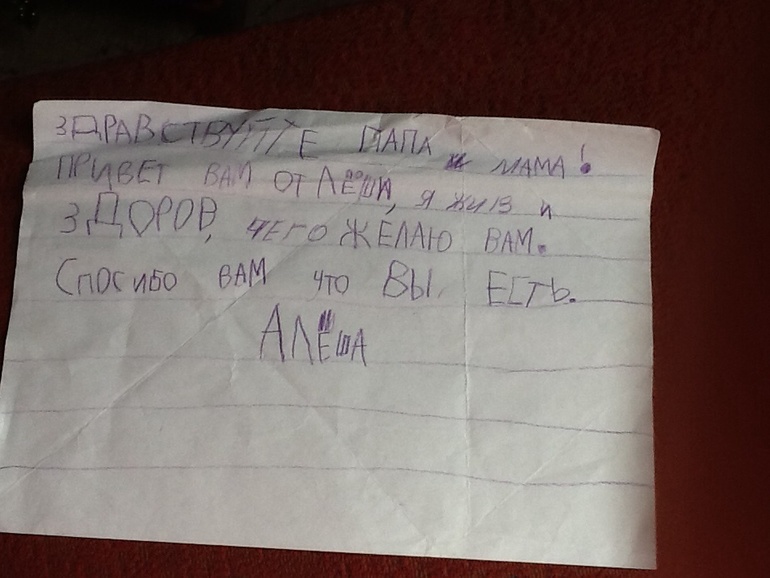 ЗДРАВСТВУЙТЕ ПАПА и МАМА!
ПРИВЕТ ВАМ ОТ ЛЁШИ, Я ЖИВ И
ЗДОРОВ, ЧЕГО ЖЕЛАЮ ВАМ.
СПОСИБО ВАМ ЧТО ВЫ ЕСТЬ.
АЛЁША